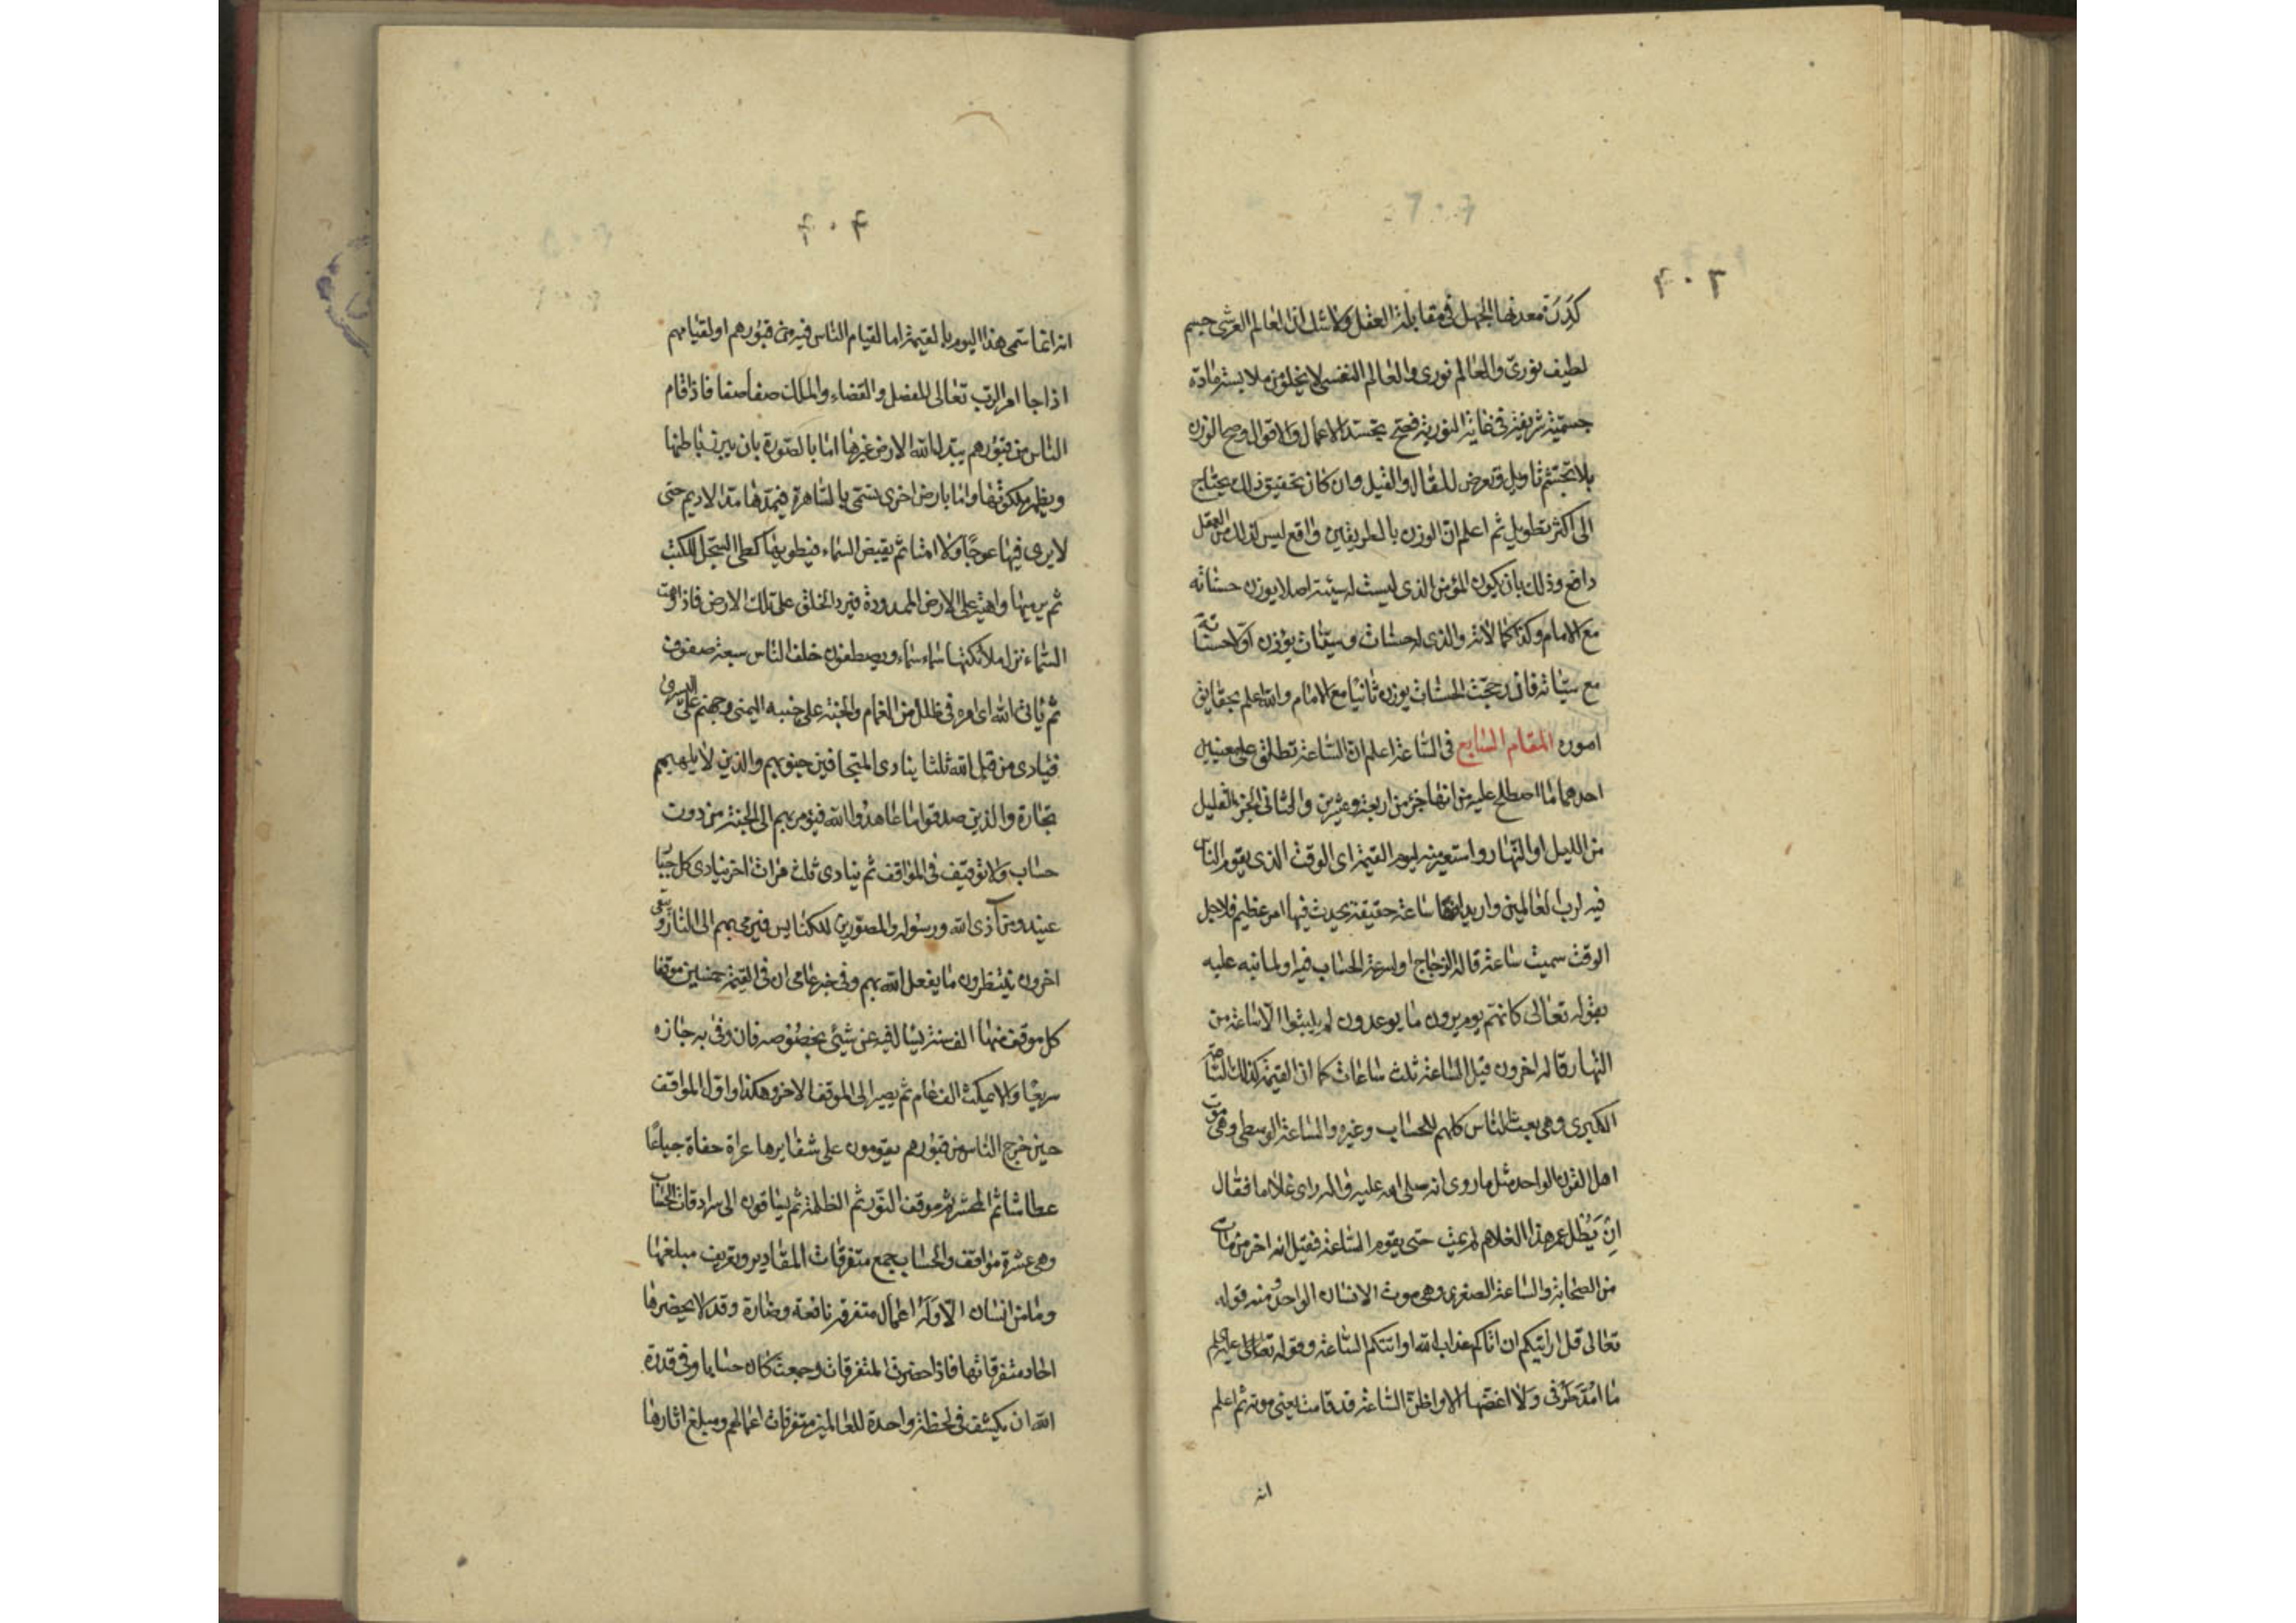 ٤٠٣
كدرت معدنها الجهل في مقابلة العقل ولا شك ان العالم العرشي جسم
لطيف نوري والعالم نوري والعالم النفسي لا يخلو من ملابسة مادة
جسمية شريفة في غاية النورية فصح تجسد الاعمال والاقوال وصح الوزن
بلا تجشم تاويل وتعرض للقال والقيل وان كان تحقيق ذلك يحتاج
الى اكثر تطويل ثم اعلم ان الوزن بالطريقين واقع ليس لذلك من العقل
دافع وذلك بان يكون المؤمن الذي ليست له سيئة اصلا يوزن حسناته
مع الامام وكذا كمالاته والذي له حسنات وسيئات يوزن اولا حسناته
مع سيئاته فان رجحت الحسنات يوزن ثانيا مع الامام والله اعلم بحقايق
اموره المقام السابع في الساعة اعلم ان الساعة تطلق على معنيين
احدهما ما اصطلح عليه من انها جزء من اربعة وعشرين والثاني الجزء القليل
من الليل او النهار واستعير منه ليوم القيمة اي الوقت الذي يقوم الناس
فيه لرب العالمين واريد انها ساعة حقيقة يحدث فيها امر عظيم فلاجل
الوقت سميت ساعة قاله الزجاج او لسرعة الحساب فيه او لما نبه عليه
بقوله تعالى كانهم يوم يرون ما يوعدون لم يلبثوا الا ساعة من
النهار وقال اخرون قيل الساعة ثلث ساعات كما ان القيمة كذلك الساعة
الكبرى وهي بعث الناس كلهم للحساب وغيره والساعة الوسطى وهي موت
اهل القرن الواحد مثل ما روي انه صلى الله عليه واله راى غلاما فقال
ان يطل عمر هذا الغلام لم يمت حتى يقوم الساعة فقيل انه اخر من مات
من الصحابة والساعة الصغرى وهي موت الانسان الواحد ومنه قوله
تعالى قل ارايتكم ان اتاكم عذاب الله او اتتكم الساعة وقوله
ما امد طرفي ولا اغضها الا واظن الساعة قد قامت يعني موته ثم اعلم
انه
٤٠٤
انه انما سمي هذا اليوم بالقيمة اما لقيام الناس فيه من قبورهم او لقيامهم
اذا جا امر الرب تعالى للفصل والقضاء والملك صفا صفا فاذا قام
الناس من قبورهم يبدل الله الارض غيرها اما بالصورة بان يبرز باطنها
ويظهر ملكوتها واما بارض اخرى تسمى بالساهرة فيمدها مد الاديم حتى
لا يرى فيها عوجا ولا امتا ثم يقبض السماء فيطويها كطي السجل للكتب
ثم يرميها واهية على الارض الممدودة فيرد الخلق على تلك الارض فاذا وهت
السماء نزل ملائكتها سماء سماء ويصطفون خلف الناس سبعة صفوف
ثم ياتي الله اي امره في ظلل من الغمام والجنة على جنبه اليمنى وجهنم على اليسرى
فينادي من قبل الله ثلثا ينادي المتجافين جنوبهم والذين لا يلهيهم
تجارة والذين صدقوا ما عاهدوا الله فيؤمر بهم الى الجنة من دون
حساب ولا توقيف في المواقف ثم ينادي ثلث مرات اخر ينادي كل جبار
عنيد ومن آذى الله ورسوله والمصورين للكنايس فيرمى بهم الى النار ويبقى
اخرون ينتظرون ما يفعل الله بهم وفي خبر عامي ان في القيمة خمسين موقفا
كل موقف منها الف سنة يسال فيه عن شيئ بخصوصه فان وفى به جازه
سريعا والا يمكث الف عام ثم يصير الى الموقف الاخر وهكذا واول المواقف
حين خرج الناس من قبورهم يقومون على شفايرها عراة حفاة جياعا
عطاشا ثم المحشر ثم موقف النور ثم الظلمة ثم يساقون الى سرادقات الحساب
وهي عشرة مواقف والحساب جمع متفرقات المقادير وتعريف مبلغها
وما من انسان الا وله اعمال متفرقة نافعة وضارة وقد لا يحضرها
احاد متفرقاتها فاذا حصرت المتفرقات وجمعت كان حسابا وفي قدرة
الله ان يكشف في لحظة واحدة للعالمين متفرقات اعمالهم ومبلغ اثارها